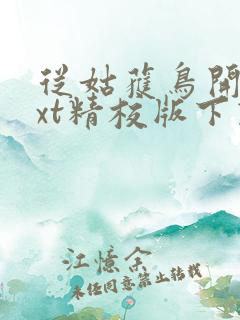 從姑蒦鳥開
xt精校版下
江憶余
未经同意禁止转载